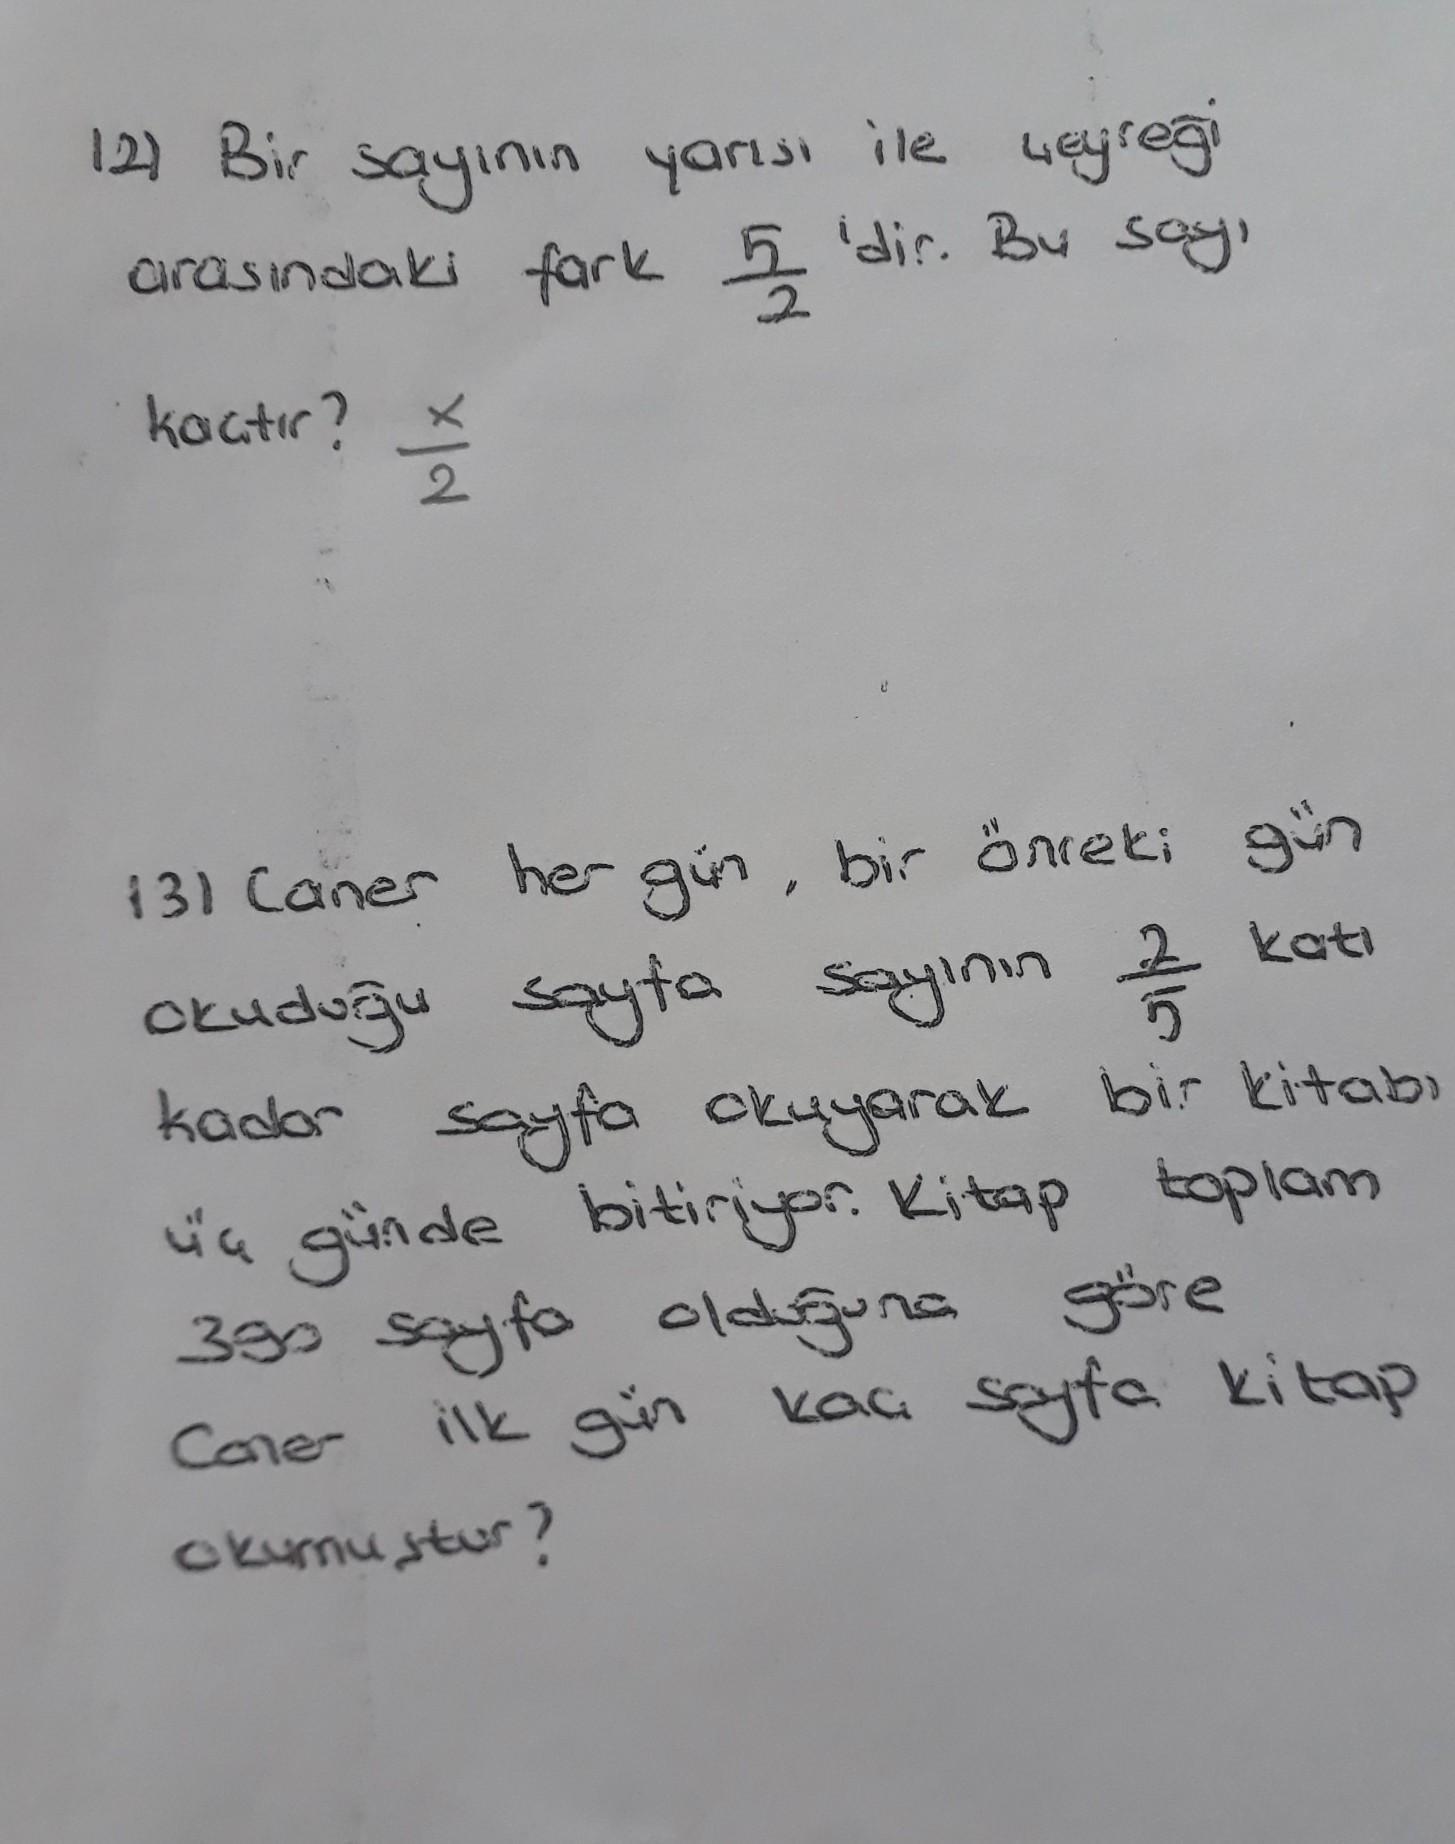 12) Bir sayının yarısı ile çeyreği
arasındaki fark 5/2 'dir. Bu sayı
kaçtır? x/2
13) Caner her gün, bir önceki gün
okuduğu sayfa sayının 2/5 katı
kadar sayfa okuyarak bir kitabı
üç günde bitiriyor. Kitap toplam
390 sayfa olduğuna göre
Caner ilk gün kaç sayfa kitap
okumuştur?